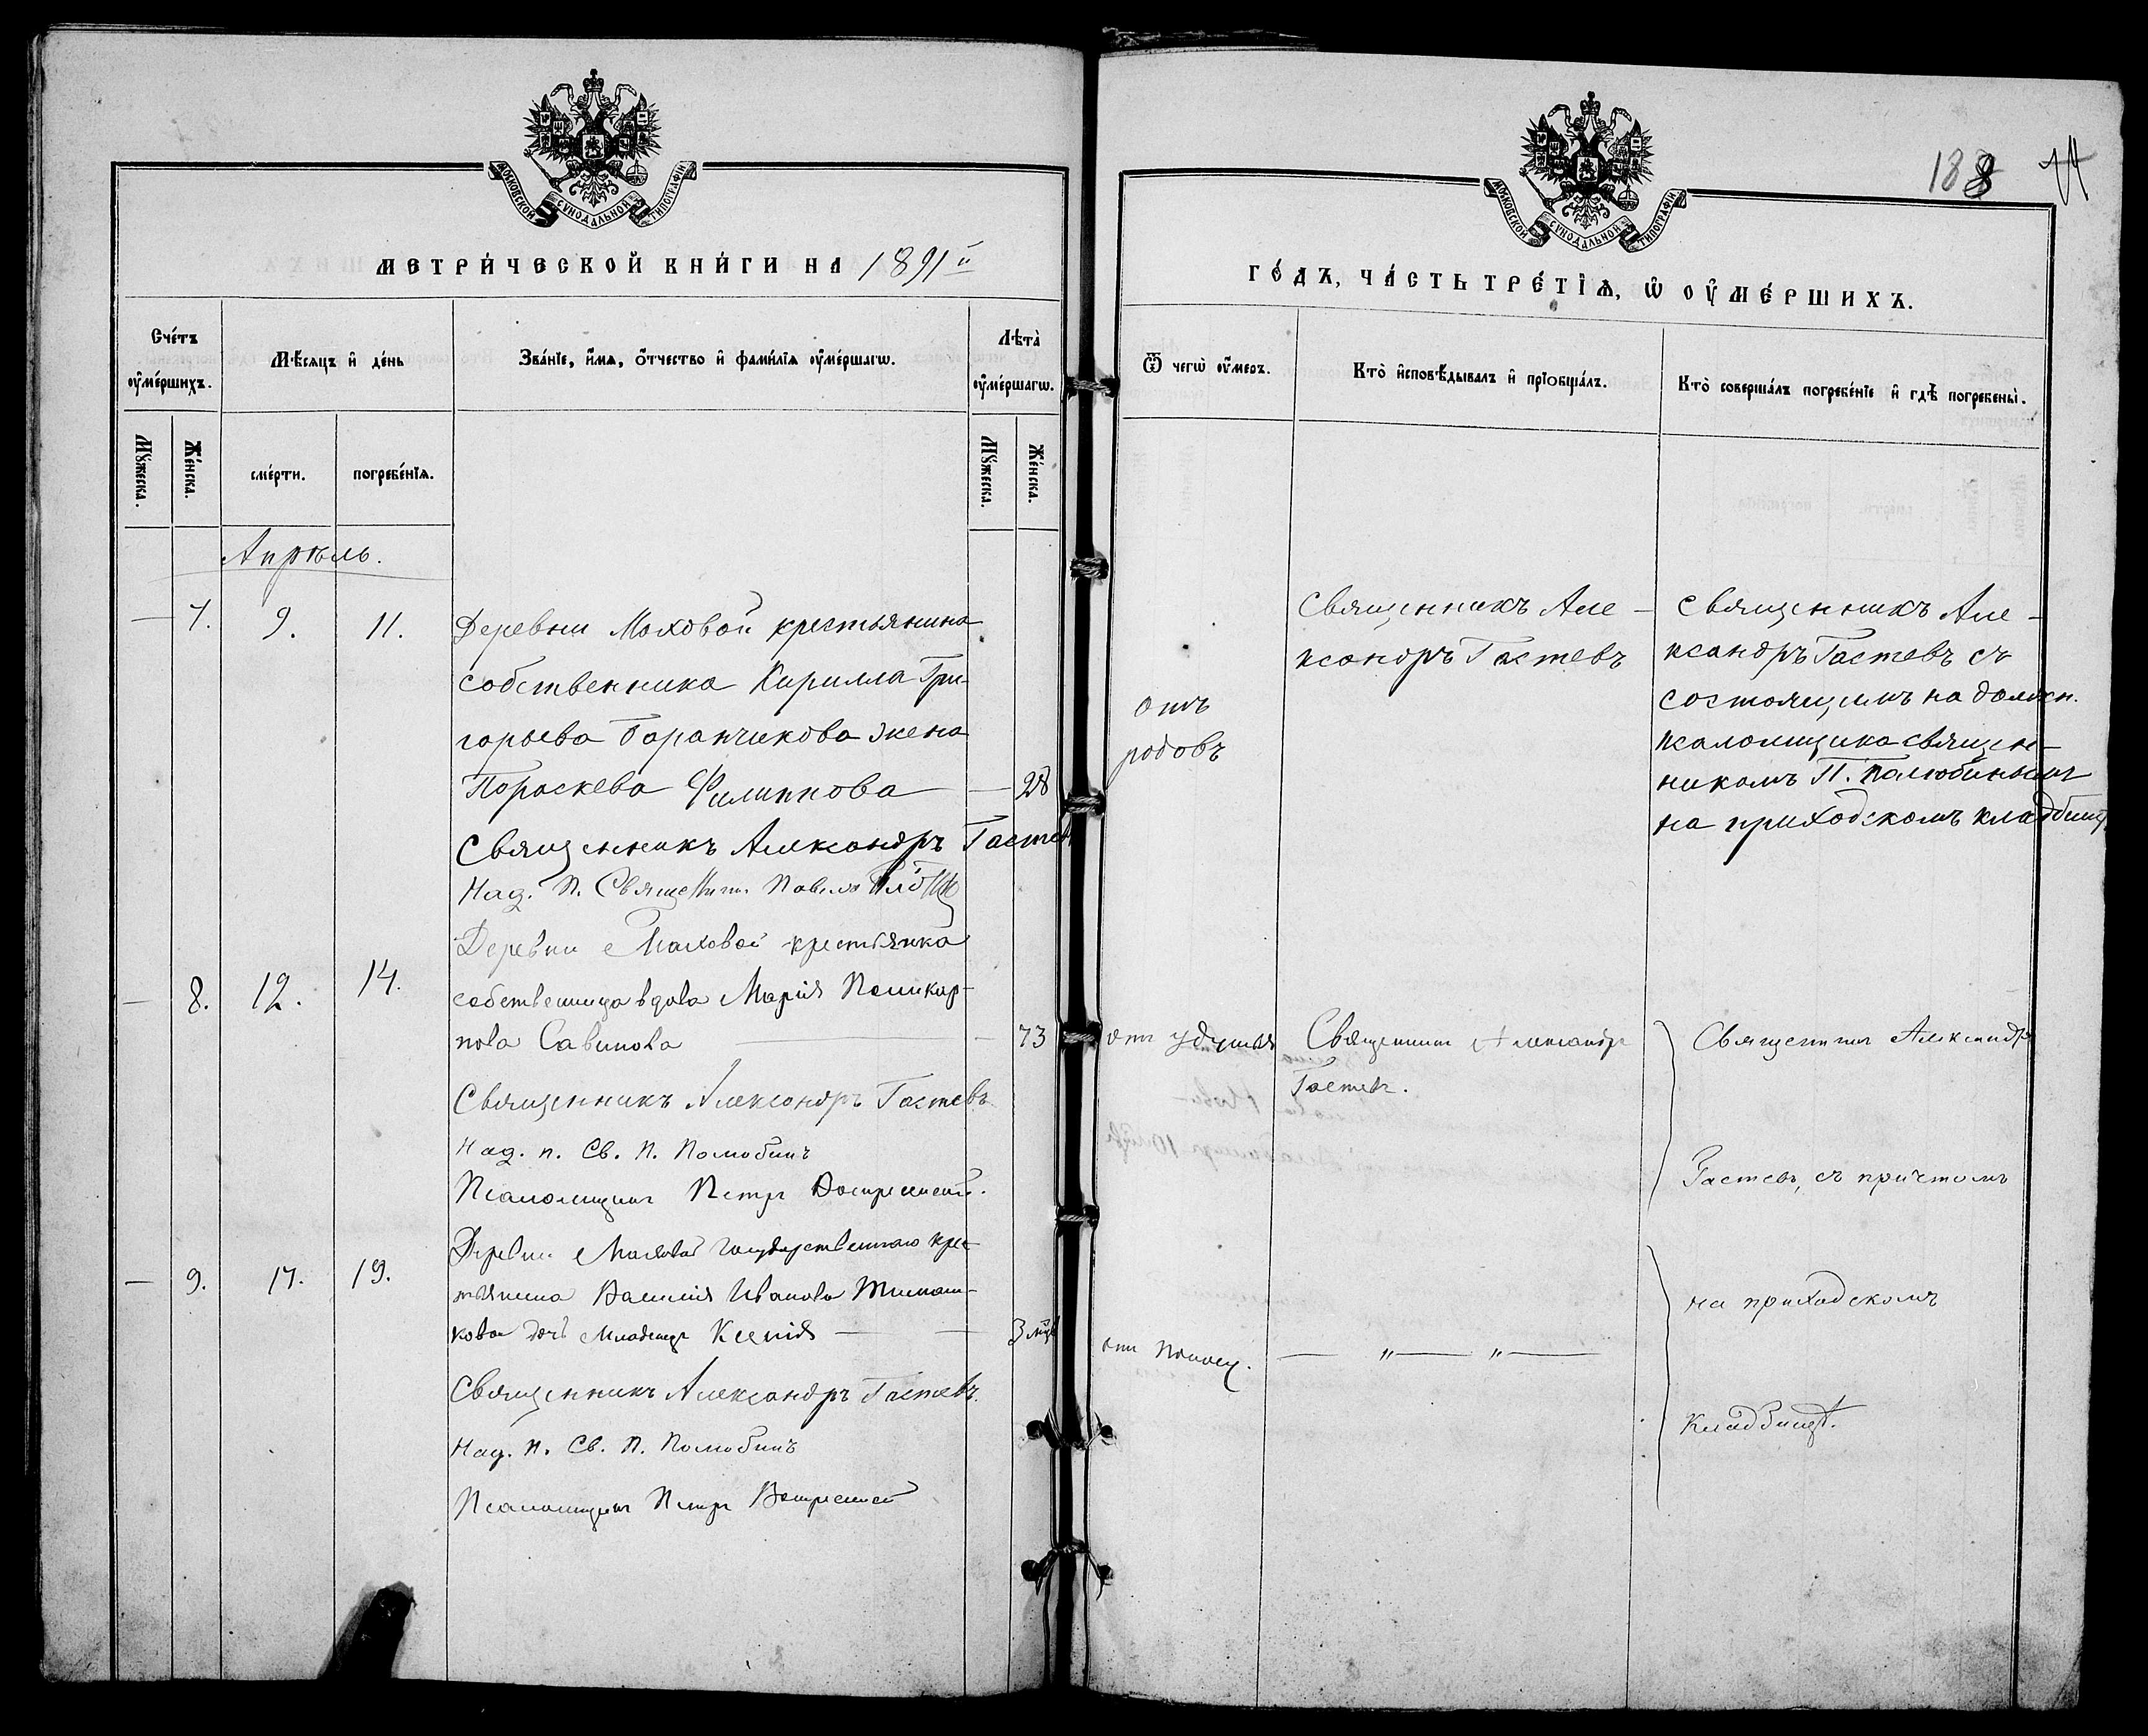 МОСКОВСКОЙ СѴНОДАЛЬНОЙ ТИПОГРАФІИ
МЕТРИ́ЧЕСКОЙ КНИ́ГИ НА 1891й
Сче́тъ ᲂу҆ме́ршихъ.
Мѣ́сяцъ и҆ де́нь
Зва́нїе, и҆́мѧ, ѻ҆́тчество и҆ фами́лїѧ ᲂу҆ме́ршагѡ.
Лѣта̀ ᲂу҆ме́ршагѡ.
Мꙋ́жеска.
Же́нска.
сме́рти.
погребе́нїѧ.
Мꙋ́жеска.
Же́нска.
Апрѣль.
— 7. 9. 11. Деревни Моховой крестьянина
собственника Кирилла Гри-
горьева Баранчикова жена
Параскева Филиппова — 28
Священникъ Александръ Гастев
Над. п. Священникъ Павелъ
Деревни Моховой крестьянка
— 8. 12. 14. собственница вдова Марія Поликар-
пова Савинова — 73
Священникъ Александръ Гастевъ
Над. п. Св. П. Полюбинъ
Псаломщикъ Петръ Воскресенскій.
Деревни Моховой государственнаго крес-
— 9. 17. 19. тьянина Василія Иванова
кова дочь младенецъ Ксенія — — 3 мѣс
Священникъ Александръ Гастевъ.
Над. п. Св. П. Полюбинъ
Псаломщикъ Петръ Воскресенскій
188
МОСКОВСКОЙ СѴНОДАЛЬНОЙ ТИПОГРАФІИ
ГО́ДЪ, ЧА́СТЬ ТРЕ́ТЇѦ, Ѡ҆ ОУ҆МЕ́РШИХЪ.
Ѿ чегѡ̀ ᲂу҆́меръ.
Кто̀ и҆сповѣ́дывалъ и҆ прїѡбща́лъ.
Кто̀ соверша́лъ погребе́нїе и҆ гдѣ̀ погребены̀.
отъ
родовъ
Священникъ Але-
ксандръ Гастевъ
Священникъ Але-
ксандръ Гастевъ съ
состоящимъ на должн.
псаломщика священ-
никомъ П. Полюбинымъ
на приходскомъ кладбищѣ
отъ удушья
Священникъ Александръ
Гастевъ.
Священникъ Александръ
Гастевъ, съ причтомъ
на приходскомъ
кладбищѣ.
отъ поноса.
— „ — „ —